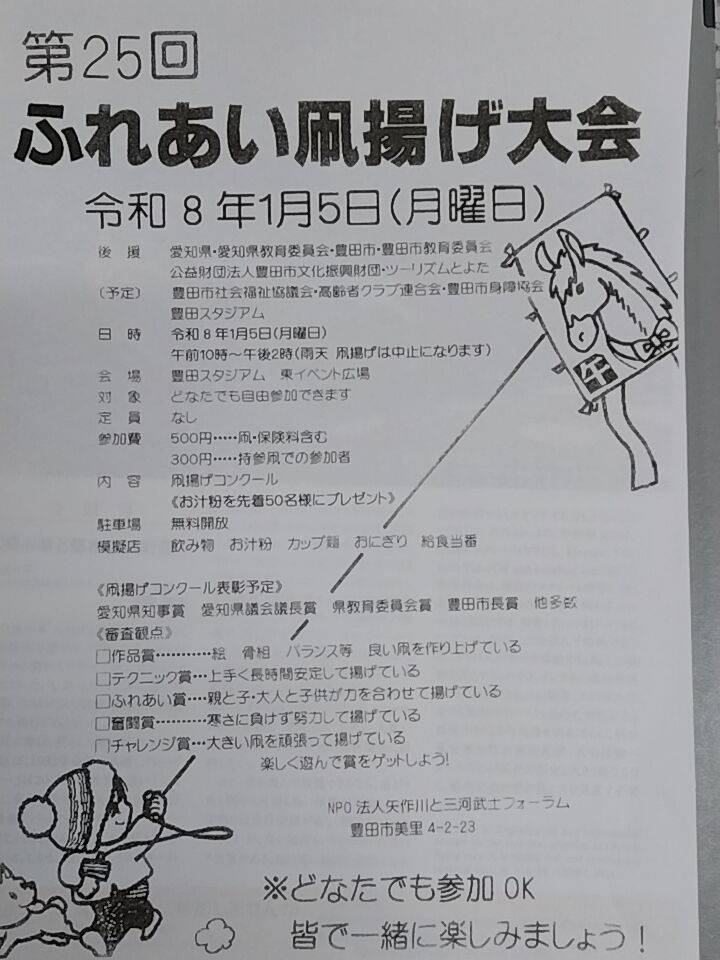 第25回
ふれあい凧揚げ大会
令和 8 年1月5日(月曜日)
後 援 愛知県・愛知県教育委員会・豊田市・豊田市教育委員会
公益財団法人豊田市文化振興財団・ツーリズムとよた
(予定) 豊田市社会福祉協議会・高齢者クラブ連合会・豊田市身障協会
豊田スタジアム
日 時 令和 8 年1月5日(月曜日)
午前10時～午後2時(雨天 凧揚げは中止になります)
会 場 豊田スタジアム 東イベント広場
対 象 どなたでも自由参加できます
定 員 なし
参加費 500円‥‥‥凧・保険料含む
300円‥‥‥持参凧での参加者
内 容 凧揚げコンクール
《お汁粉を先着50名様にプレゼント》
駐車場 無料開放
模擬店 飲み物 お汁粉 カップ麺 おにぎり 給食当番
《凧揚げコンクール表彰予定》
愛知県知事賞 愛知県議会議長賞 県教育委員会賞 豊田市長賞 他多数
《審査観点》
□作品賞‥‥‥‥‥絵 骨組 バランス等 良い凧を作り上げている
□テクニック賞‥‥上手く長時間安定して揚げている
□ふれあい賞‥‥親と子・大人と子供が力を合わせて揚げている
□奮闘賞‥‥‥‥‥寒さに負けず努力して揚げている
□チャレンジ賞‥‥大きい凧を頑張って揚げている
楽しく遊んで賞をゲットしよう!
NPO 法人矢作川と三河武士フォーラム
豊田市美里 4-2-23
※どなたでも参加 OK
皆で一緒に楽しみましょう!
午